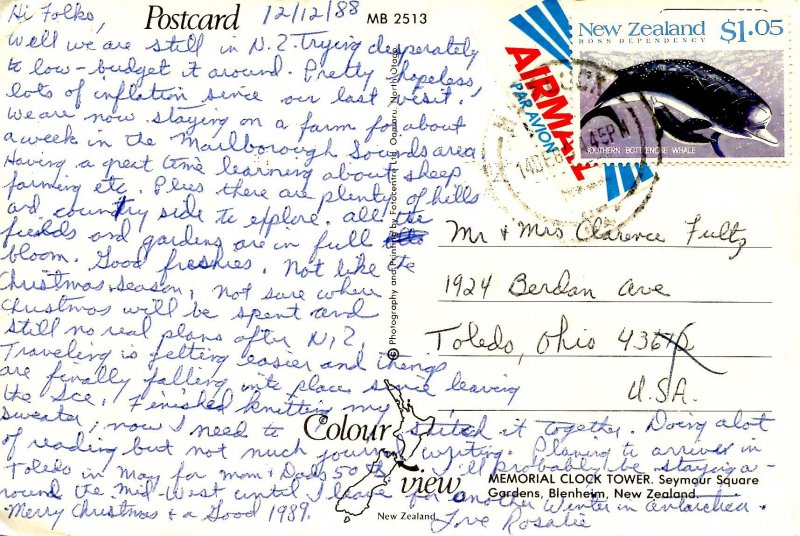 Postcard
12/12/88
MB 2513
Hi Folks,
Well we are still in N.Z. Trying desperately
to low-budget it around. Pretty hopeless
lots of inflation since our last visit.
We are now staying on a farm for about
a week in the Marlborough Sounds area
Having a great time learning about sheep
farming etc. Plus there are plenty of hills
and country side to explore. All the
fields and gardens are in full
bloom. Good freshies. Not like the
Christmas season, not sure where
Christmas will be spent and
still no real plans after N.Z.
Traveling is getting easier and things
are finally falling into place since leaving
the Ice. Finished knitting my
sweater, now I need to stitch it together. Doing alot
of reading but not much journal writing. Planing to arrive in
Toledo in May for Mom & Dads 50th I'll probably be staying a-
round the Mid-West until I leave for another Winter in Antarctica.
Merry Christmas & a Good 1989.
Love Rosalie
© Photography and Printing by Fotocentre Ltd, Oamaru, North Otago
AIRMAIL
PAR AVION
New Zealand
ROSS DEPENDENCY
$1.05
SOUTHERN BOTTLENOSE WHALE
Mr & Mrs Clarence Fultz
1924 Berdan Ave
Toledo, Ohio
U.S.A.
Colour
view
New Zealand
MEMORIAL CLOCK TOWER. Seymour Square
Gardens, Blenheim, New Zealand.